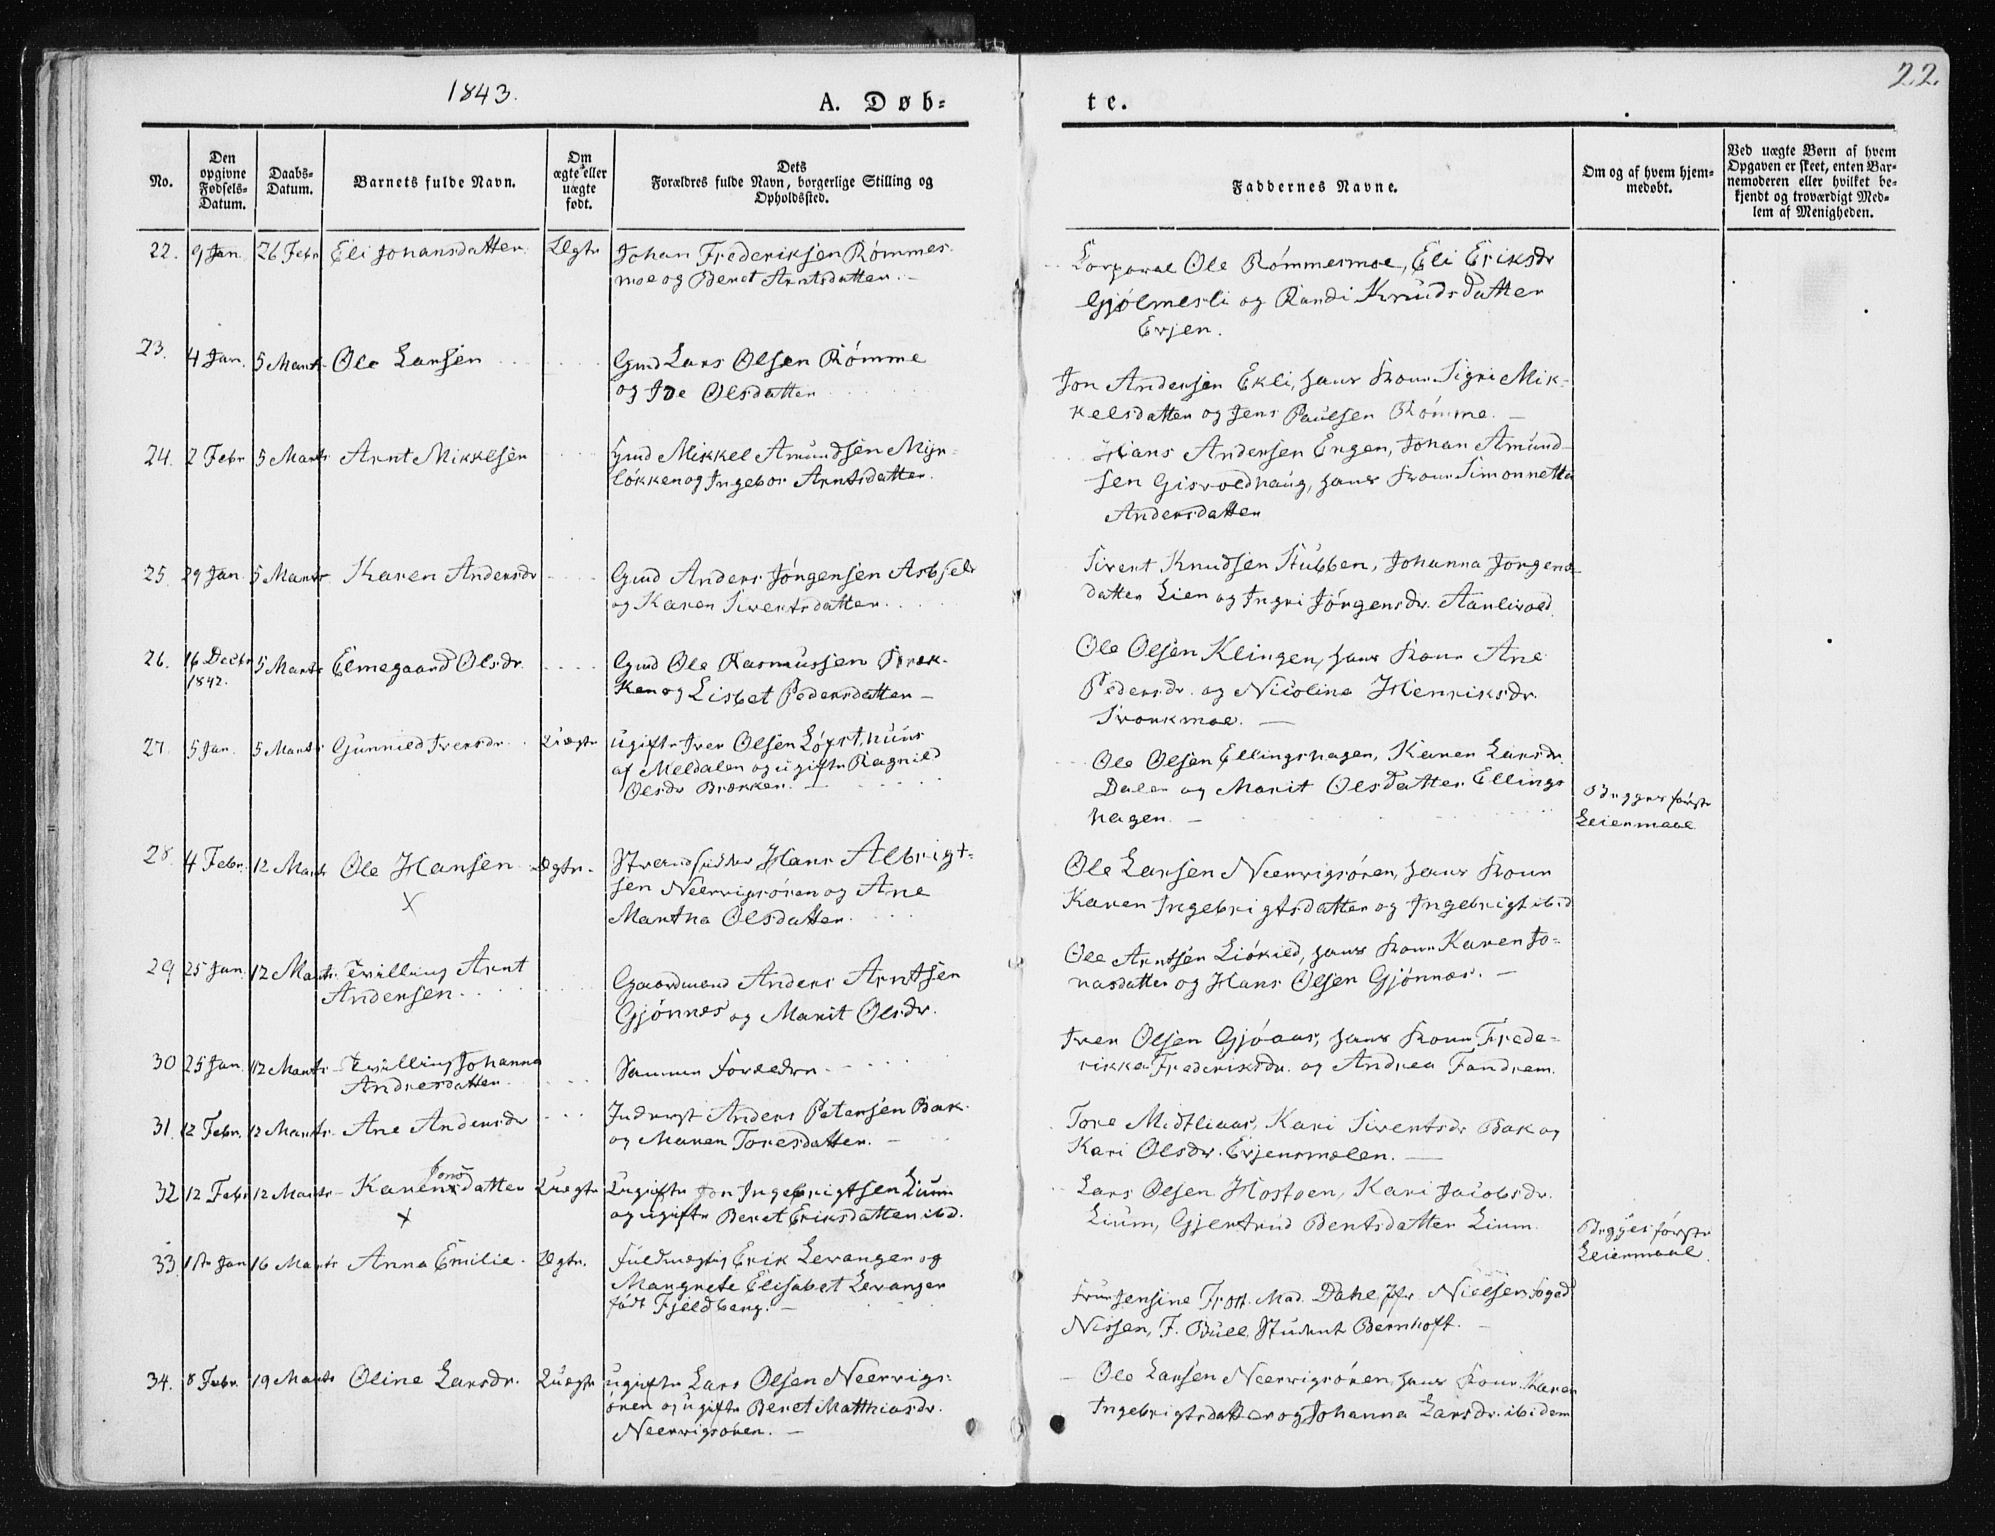 1843.
A. Døb-
te.
22.
No.
Den opgivne Fødsels-Datum.
Daabs-Datum.
Barnets fulde Navn.
Om ægte eller uægte født.
Dets
Forældres fulde Navn, borgerlige Stilling og
Opholdssted.
Faddernes Navne.
Om og af hvem hjem-
medøbt.
Ved uægte Børn af hvem
Opgaven er skeet, enten Bar-
nemoderen eller hvilket be-
kjendt og troværdigt Med-
lem af Menigheden.
22. 9 Jan. 26 Febr Eli Johansdatter Ægte Johan Frederiksen Rømmes-
moe og Beret Arntsdatter.
Corporal Ole Rømmesmoe, Eli Eriksdr
Gjølmesli og Randi Knudsdatter
Evjen.
23. 4 Jan. 5 Marts Ole Larsen Gmd Lars Olsen Rømme
og Olsdatter
Jon Andersen Ekli, hans Kone Sigri Mik-
kelsdatter og Jens Paulsen Rømme.
24. 2 Febr 5 Marts Arnt Mikkelsen Gmd Mikkel Amundsen Myr-
løkken og Ingebor Arntsdatter.
Hans Andersen Engen, Johan Amund-
sen Gisvoldhaug, hans Kone Simonnetta
Andersdatter
25. 29 Jan 5 Marts Karen Andersdr Gmd Anders Jørgensen Asbjell
og Karen Sivertsdatter.
Sivert Knudsen Stubben, Johanna Jørgens-
datter Lien og Ingri Jørgensdr. Aarlivold
26. 16 Decbr 5 Marts Elmegaard Olsdr. Gmd Ole Rasmussen Bræk-
1842.
ken og Lisbet Pedersdatter
Ole Olsen Klingen, hans Kone Ane
Pedersdr. og Nicolina Henriksdr.
Svorkmoe.
27. 5 Jan. 5 Marts Gunnild Iversdr. Uægte ugifte Iver Olsen
af Meldalen og ugifte Ragnild
Olsdr Brækken.
Ole Olsen Ellingshagen, Karen Larsdr
Dalen og Marit Olsdatter Ellings
hagen.
Begges første
Leiermaal
28. 4 Febr. 12 Marts Ole Hansen Ægte. Strandsidder Hans Albrigt-
X
sen Neervigsøren og Ane
Martha Olsdatter.
Ole Larsen Neervigsøren, hans Kone
Karen Ingebrigtsdatter og Ingebrigt ibid
29 25 Jan 12 Marts Tvilling Arnt
Andersen.
Gaardmand Anders Arntsen
Gjønnes og Marit Olsdr.
Ole Arntsen Liøkild, hans Kone Karen Jo-
nasdatter og Hans Olsen Gjønnes.
30 25 Jan 12 Marts Tvilling Johanna
Andersdatter
Samme Forældre
Iver Olsen Gjøaas, hans Kone Frede-
rikka Frederiksdr. og Andrea Fandrem.
31. 12 Febr. 12 Marts Ane Andersdr Inderst Anders Petersen Bak
og Maren Toresdatter.
Tore Midtliaas, Kari Sivertsdr Bak og
Kari Olsdr. Evjensmælen.
32 12 Febr 12 Marts Karen Jonsdatter Uægte Ugifte Jon Ingebrigtsen Lium
X
og ugifte Beret Eriksdatter ibd.
Lars Olsen Hostoen, Kari Jacobsdr.
Lium, Gjertrud Bentsdatter Lium
Begges første
Leiermaal.
33 1ste Jan 16 Marts Anna Emilie. Ægte. Fuldmægtig Erik Levanger og
Margrete Elisabet Levanger
født Fjeldberg.
Fru Jensine Frost. Mad. Dahl, Jfr Nielsen, Foged
Nissen, F. Bull, Student Bernhoft.
34. 8 Febr. 19 Marts Oline Larsdr. Uægte ugifte Lars Olsen Neervigs-
øren og ugifte Beret Matthiasdr.
Neervigsøren.
Ole Larsen Neervigsøren, hans Kone Karen
Ingebrigtsdatter og Johanna Larsdr. ibidem